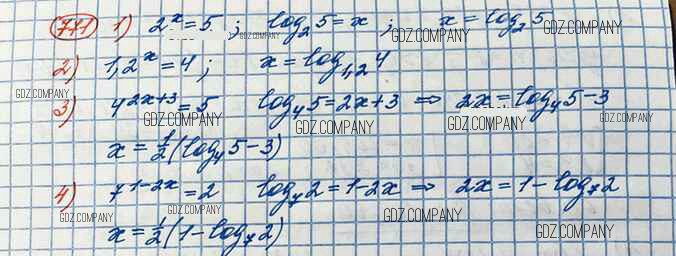 771 1) 2^x = 5 ; log_2 5 = x ; x = log_2 5
GDZ.COMPANY GDZ.COMPANY
2) 1,2^x = 4 ; x = log_1,2 4
GDZ.COMPANY
3) 4^(2x+3) = 5 log_4 5 = 2x+3 ⇒ 2x = log_4 5 - 3
GDZ.COMPANY GDZ.COMPANY GDZ.COMPANY GDZ.COMPANY
x = 1/2 (log_4 5 - 3)
4) 7^(1-2x) = 2 log_7 2 = 1-2x ⇒ 2x = 1 - log_7 2
GDZ.COMPANY GDZ.COMPANY GDZ.COMPANY
x = 1/2 (1 - log_7 2)
GDZ.COMPANY GDZ.COMPANY